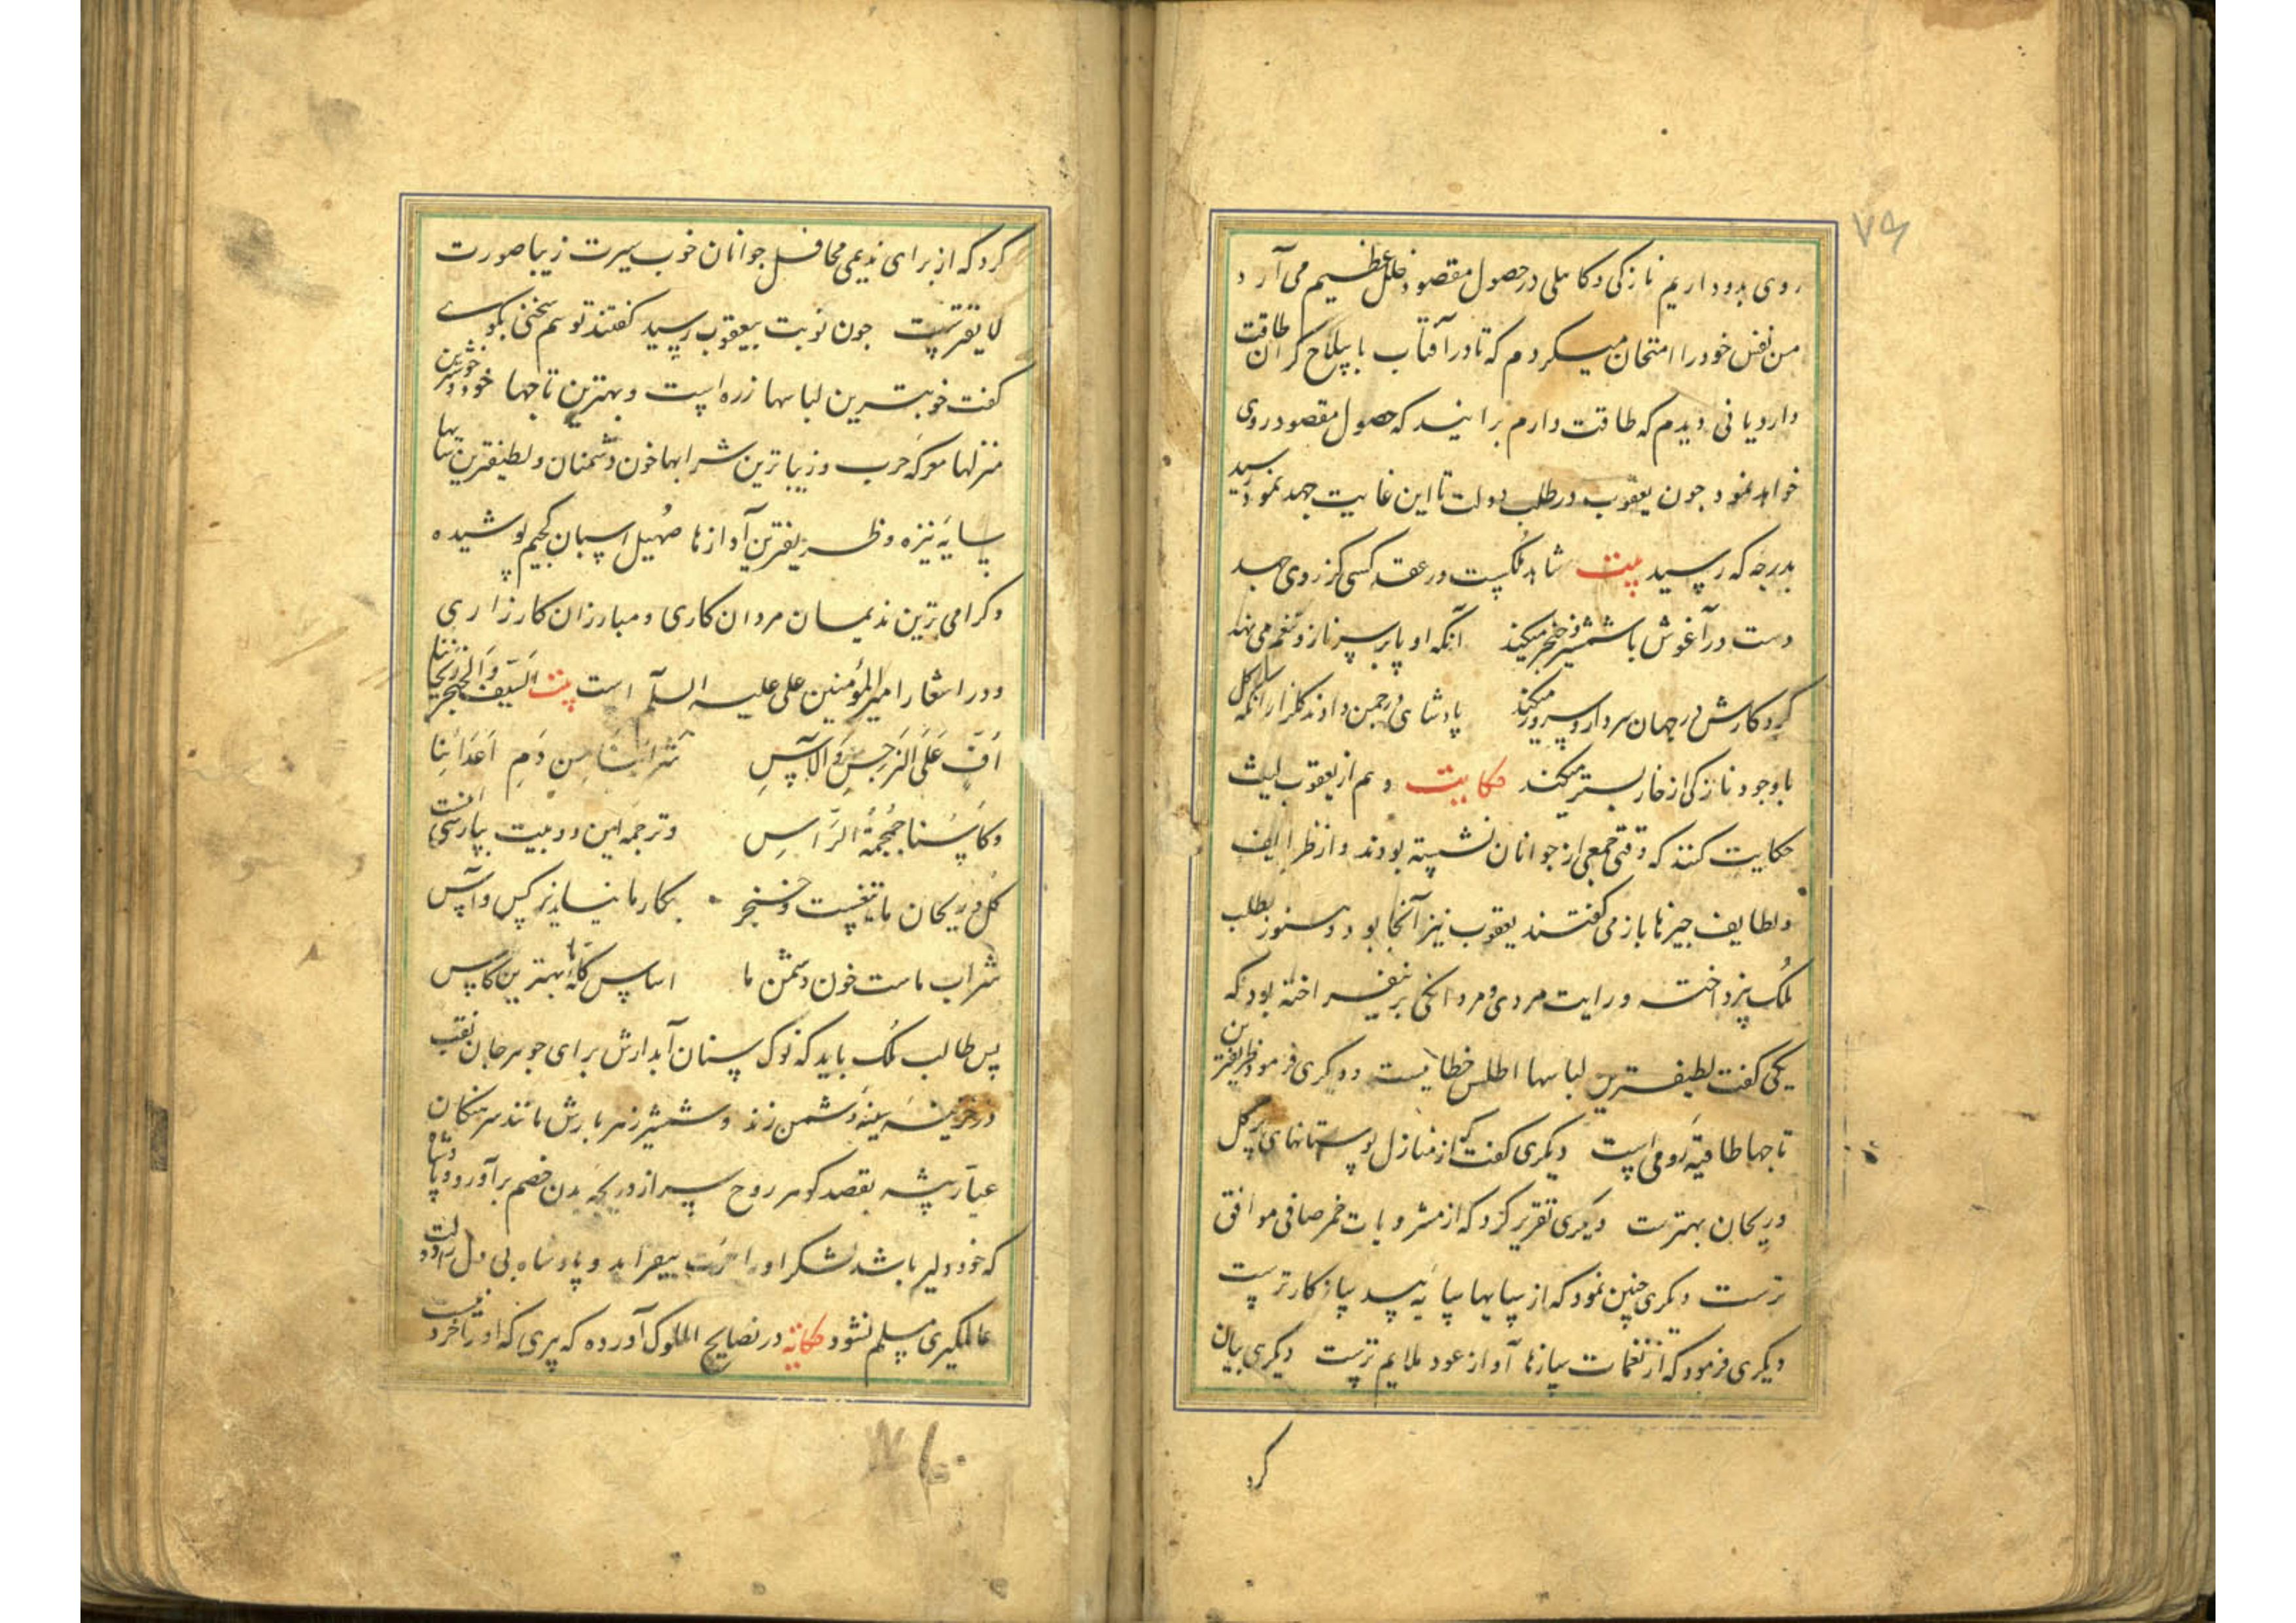 ۷۹
روی بدو داریم نازکی و کاهلی در حصول مقصود خلل عظیم می آرد
من نفس خود را امتحان میکردم که تا در آفتاب با سلاح گران طاقت
دارد یا نی دیدم که طاقت دارم برانیند که حصول مقصود روی
خواهد نمود جون یعقوب در طلب دولت تا این غایت جهد نمود رسید
بدرجه که رسید بیت شاهد ملکست در عقد کسی کز روی جهد
دست در آغوش با شمشیر و خنجر میکند آنکه او پا بر سر ناز و تنعم می نهد
کردکارش در جهان سردار و سرور میکند پادشاهی در چمن دادند گلزار انکه گل
با وجود نازکی از خار بستر میکند حکایت و هم از یعقوب لیث
حکایت کنند که وقتی جمعی از جوانان نشسته بودند و از ظرایف
و لطایف جیزها باز می گفتند یعقوب نیز آنجا بود و هنوز بطلب
ملک نپرداخته و رایت مردی و مردانکی برنیفراخته بود که
یکی گفت لطیف ترین لباسها اطلس خطائیست و دیکری فرمود ظریفترین
تاجها طاقیه رومی است دیکری گفت که از منازل بوستانهای پر گل
و ریحان بهترست دیکری تقریر کرد که از مشروبات خمر صافی موافق
ترست دیکری چنین نمود که از سایها سایه بید سازکارترست
دیکری فرمود که از نغمات سازها آواز عود ملایم ترست دیکری بیان
کرد
کرد که از برای ندیمی محافل جوانان خوب سیرت زیبا صورت
لایقترست جون نوبت بیعقوب رسید گفتند تو هم سخنی بکوی
گفت خوبترین لباسها زره است و بهترین تاجها خود و خوشترین
منزلها معرکه حرب و زیباترین شرابها خون دشمنان و لطیفترین سایها
سایه نیزه و ظریفترین آوازها صهیل اسپان کجیم پوشیده
و کرامی ترین ندیمان مردان کاری و مبارزان کارزاری
و در اشعار امیر المؤمنین علی علیه السلام است بیت السَیف وَالخنجر ریحاننا
اُفٍّ عَلَی النَرجِسِ وَالآسِ شَرابُنا مِن دَمِ اَعدائِنا
وکاسُنا جُمجُمَةُ الرَّاسِ و ترجمه این دو بیت بپارسی اینست
گل و ریحان ما تیغست و خنجر بکار ما نیاید نرکس و آس
شراب ماست خون دشمن ما اساس کله ها بهترین کاس
پس طالب ملک باید که نوک سنان آبدارش برای جوهر جان نقب
در خزینه سینه دشمن زند و شمشیر زهر بارش مانند سرهنکان
عیار پیشه بقصد کوهر روح سر از دریجه بدن خصم برآورد و پادشاه
که خود دلیر باشد لشکر او را بیفزاید و پادشاه بی دل را دولت
عالمکیری مسلم نشود حکایة در نصایح الملوک آورده که پیری که او را خرد نیست